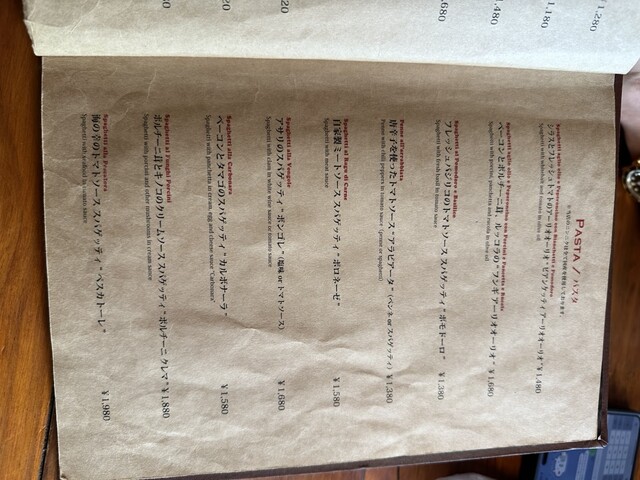 PASTA / パスタ
Spaghetti aglio olio e Peperoncino con Bianchetti e Pomodoro
シラスとフレッシュトマトのアーリオオーリオ “ビアンケッティ アーリオオーリオ” ¥1,480
Spaghetti with whitebait and tomato in olive oil
Spaghetti aglio olio e Peperoncino con Porcini e Pancetta e Rucola
ベーコンとポルチーニ茸、ルッコラの “フンギ アーリオオーリオ” ¥1,680
Spaghetti with porcini, pancetta and rucola in olive oil
Spaghetti al Pomodoro e Basilico
フレッシュバジリコのトマトソース スパゲッティ “ポモドーロ” ¥1,380
Spaghetti with fresh basil in tomato sauce
Penne all'Arrabbiata
唐辛子を使ったトマトソース “アラビアータ” (ペンネ or スパゲッティ) ¥1,380
Penne with chili peppers in tomato sauce (penne or spaghetti)
Spaghetti al Ragu di Carne
自家製ミートソース スパゲッティ “ボロネーゼ” ¥1,580
Spaghetti with meat sauce
Spaghetti alla Vongole
アサリのスパゲッティ “ボンゴレ” (塩味 or トマトソース) ¥1,680
Spaghetti with clam in white wine sauce or tomato sauce
Spaghetti alla Carbonara
ベーコンとタマゴのスパゲッティ “カルボナーラ” ¥1,580
Spaghetti with pancetta in cream, egg and cheese sauce "Carbonara"
Spaghetti ai Funghi Porcini
ポルチーニ茸とキノコのクリームソース スパゲッティ “ポルチーニ クレマ” ¥1,880
Spaghetti with porcini and other mushroom in cream sauce
Spaghetti alla Pescatora
海の幸のトマトソース スパゲッティ “ペスカトーレ” ¥1,980
Spaghetti with seafood in tomato sauce
¥1,280
¥1,180
,480
,680